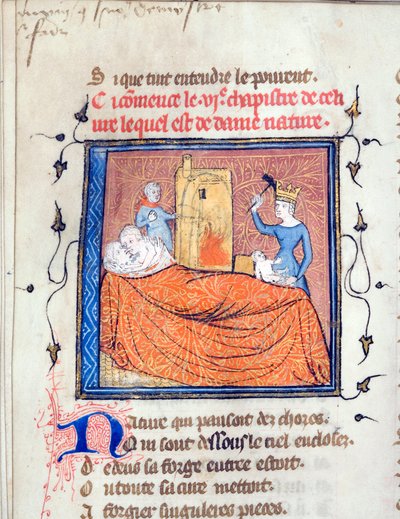 Si que tuit entendre le pouvent.
Ci comence le .vi.e chapistre de ce li
ure le quel est de dame nature.
Nature qui pansoit des choses.
Qui sont desſous le ciel encloses.
Dedens sa forge entree estoit.
Ou toute sa cure mettoit.
A forgier singuleres pieces.